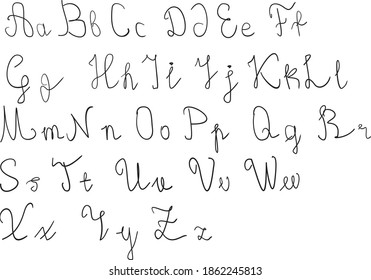 Aa Bb Cc Dd Ee Ff
Gg Hh Ii Jj Kk Ll
Mm Nn Oo Pp Qq Rr
Ss Tt Uu Vv Ww
Xx Yy Zz
shutterstock.com · 1862245813